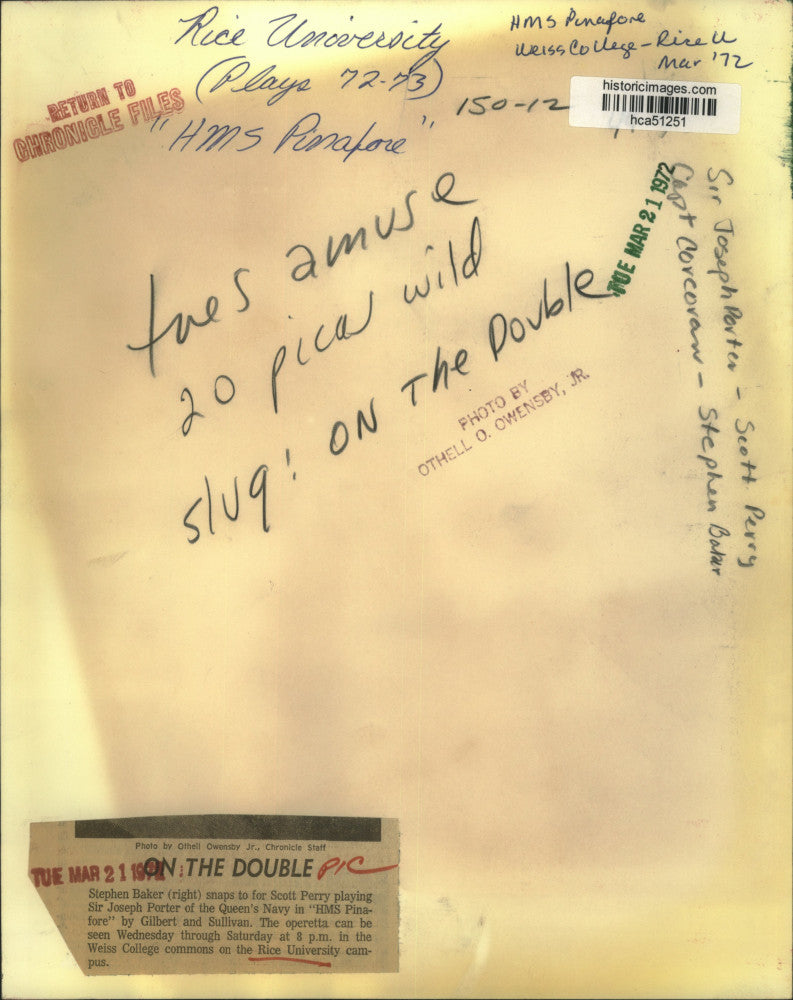 Rice University
(Plays 72-73)
"HMS Pinafore"
HMS Pinafore
Weiss College - Rice U
Mar '72
150-12
historicimages.com
hca51251
RETURN TO
CHRONICLE FILES
TUE MAR 21 1972
Sir Joseph Porter - Scott Perry
Capt Corcoran - Stephen Baker
tues amuse
20 picas wild
slug: ON The Double
PHOTO BY
OTHELL O. OWENSBY, JR.
Photo by Othell Owensby Jr., Chronicle Staff
TUE MAR 21 1972
ON THE DOUBLE PIC
Stephen Baker (right) snaps to for Scott Perry playing
Sir Joseph Porter of the Queen's Navy in "HMS Pina-
fore" by Gilbert and Sullivan. The operetta can be
seen Wednesday through Saturday at 8 p.m. in the
Weiss College commons on the Rice University cam-
pus.